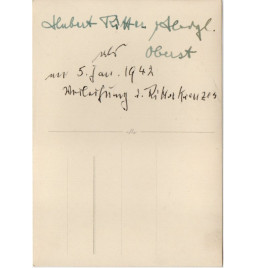 Hubert Ritter v. Hergl.
als Oberst
am 5. Jan. 1942
Verleihung d. Ritterkreuzes